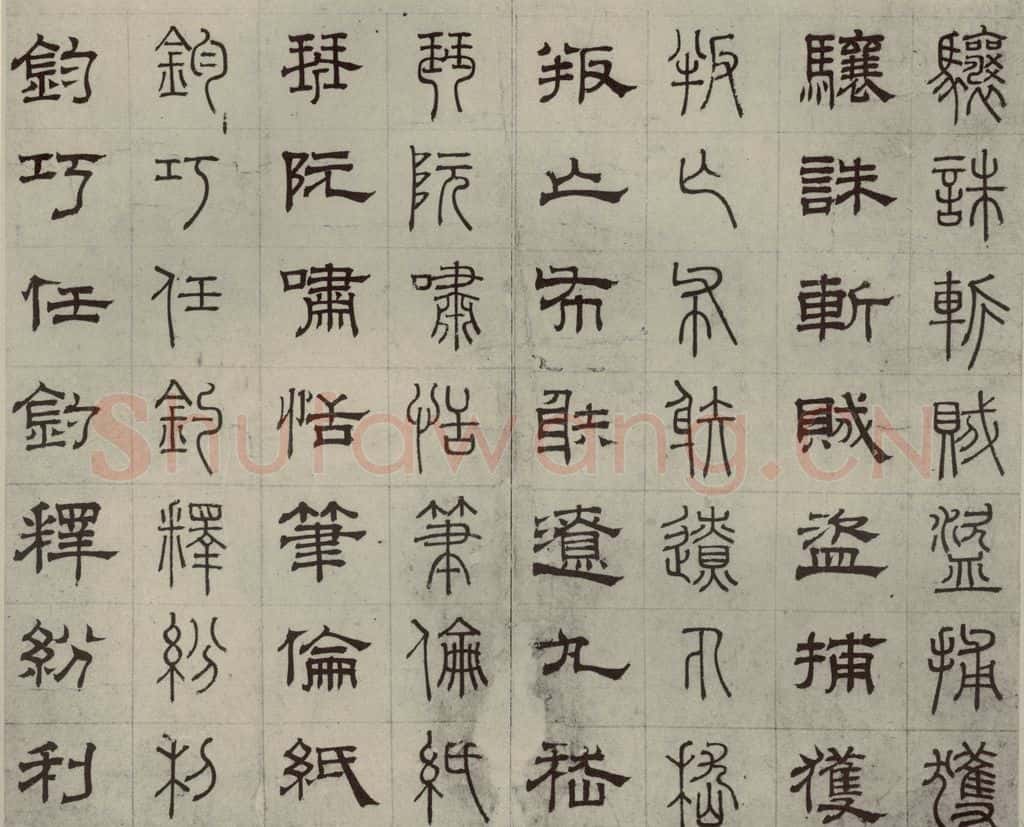 驤誅斬賊盜捕獲
驤誅斬賊盜捕獲
叛亡布射遼丸嵇
叛亡布射遼丸嵇
琴阮嘯恬筆倫紙
琴阮嘯恬筆倫紙
鈞巧任釣釋紛利
鈞巧任釣釋紛利
Shufawang.CN